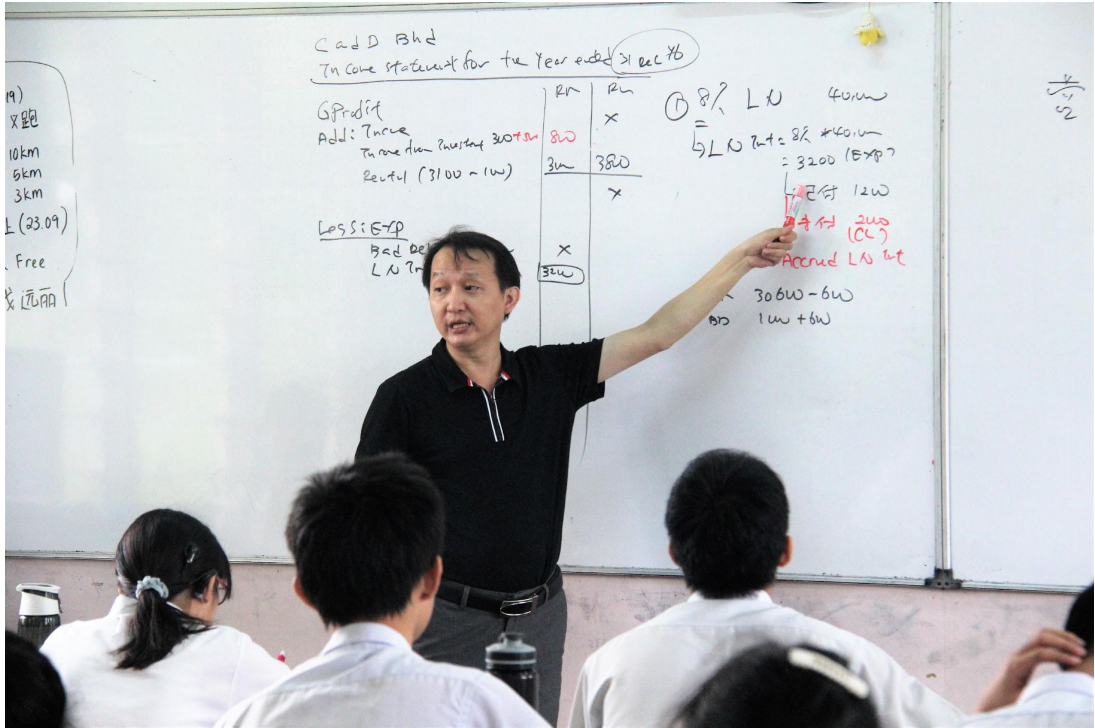 19)
X跑
10km
5km
3km
上 (23.09)
Free
C and D Bhd
Income statement for the Year ended 31 Dec X6
RM RM
GProfit x
Add: Income
Income from Investment 300+500 800
Rental (3100 - 100) 3000 3800
x
Less: Exp
Bad De x
LN In 3200
① 8% LN 40,000
LN Int = 8% * 40,000
= 3200 (Exp)
付 1200
未付 2000
(CL)
Accrued LN Int
30600 - 600
BD 100 + 600